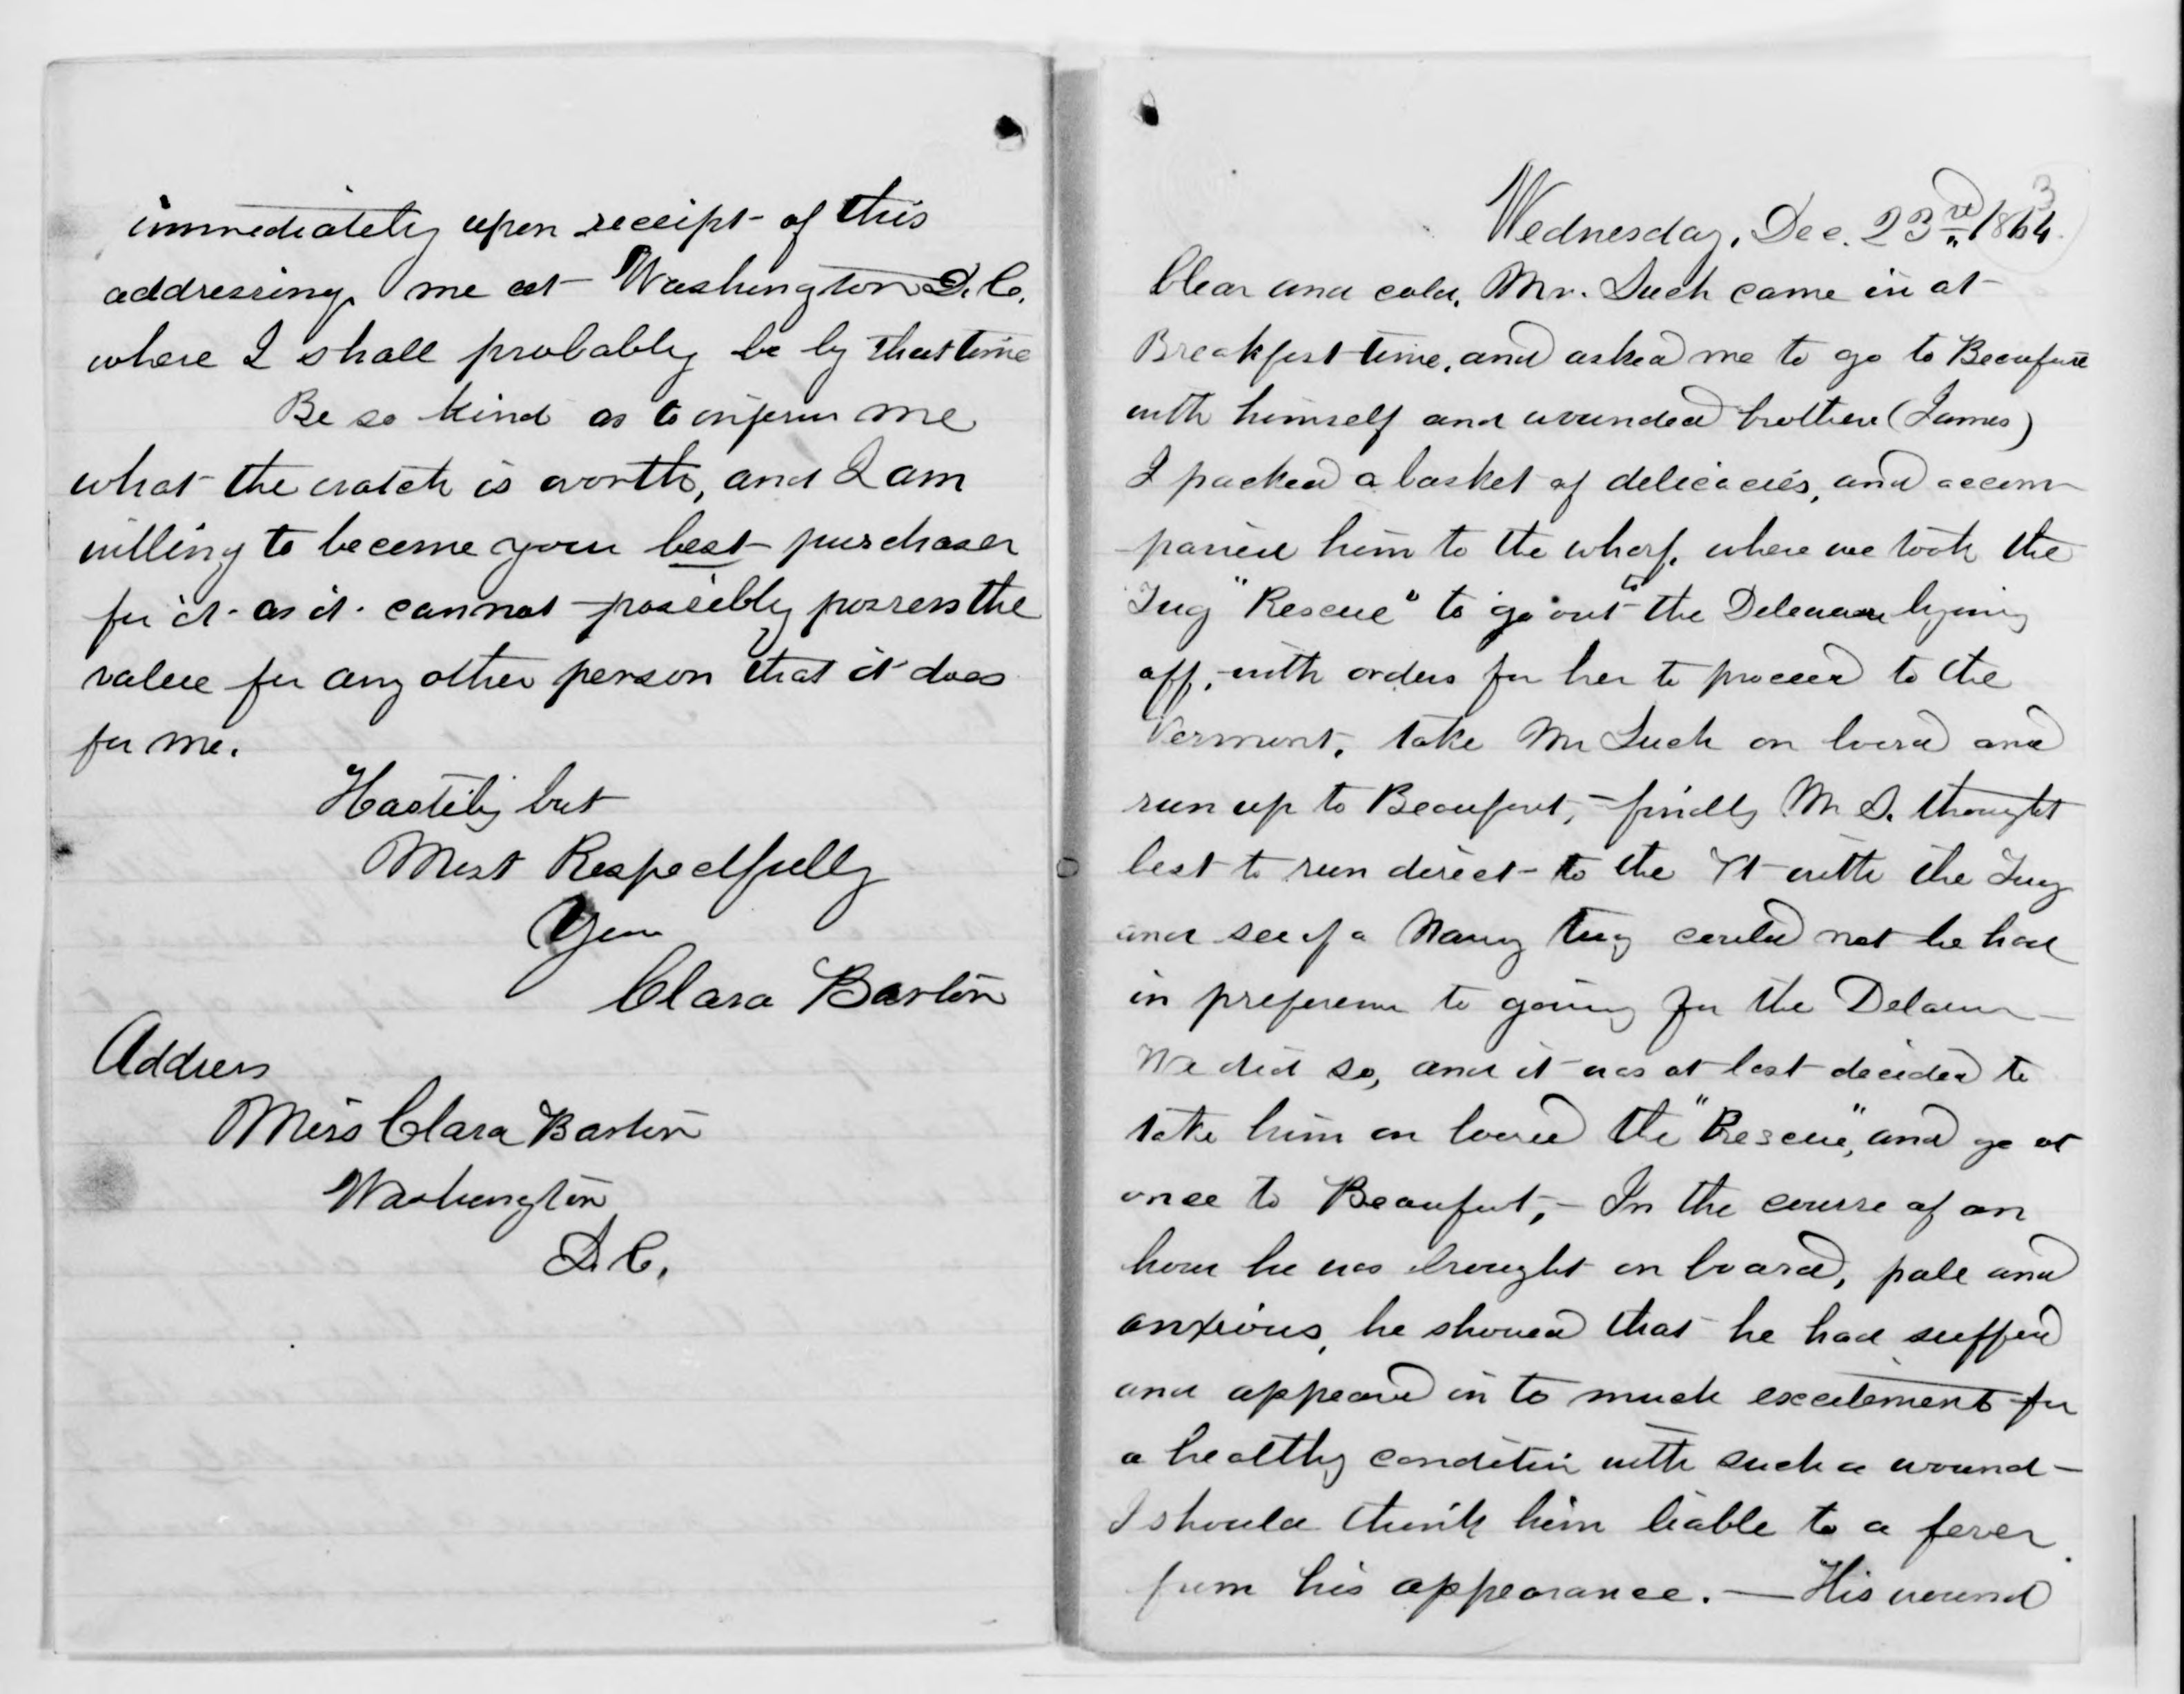 immediately upon receipt of this
addressing me at Washington D.C.
where I shall probably be by that time
Be so kind as to inform me
what the watch is worth, and I am
willing to become your best purchaser
for it - as it cannot possibly possess the
value for any other person that it does
for me.
Hastily but
Most Respectfully
Your
Clara Barton
Address
Miss Clara Barton
Washington
D.C.
Wednesday, Dec. 23rd 1863
Clear and cold. Mr. Such came in at
Breakfast time, and asked me to go to Beaufort
with himself and wounded brother (James)
I packed a basket of delicacies, and accom-
panied him to the wharf, where we took the
Tug "Rescue" to go out to the Delaware lying
off, with orders for her to proceed to the
Vermont, take Mr Such on board and
run up to Beaufort, - finally Mr S. thought
best to run direct - to the Vt with the Tug
and see if a Navy tug could not be had
in preference to going for the Delaware -
We did so, and it was at last decided to
take him on board the "Rescue", and go at
once to Beaufort, - In the course of an
hour he was brought on board, pale and
anxious, he showed that he had suffered
and appeared in to much excitement for
a healthy condition with such a wound -
I should think him liable to a fever
from his appearance. — His wound